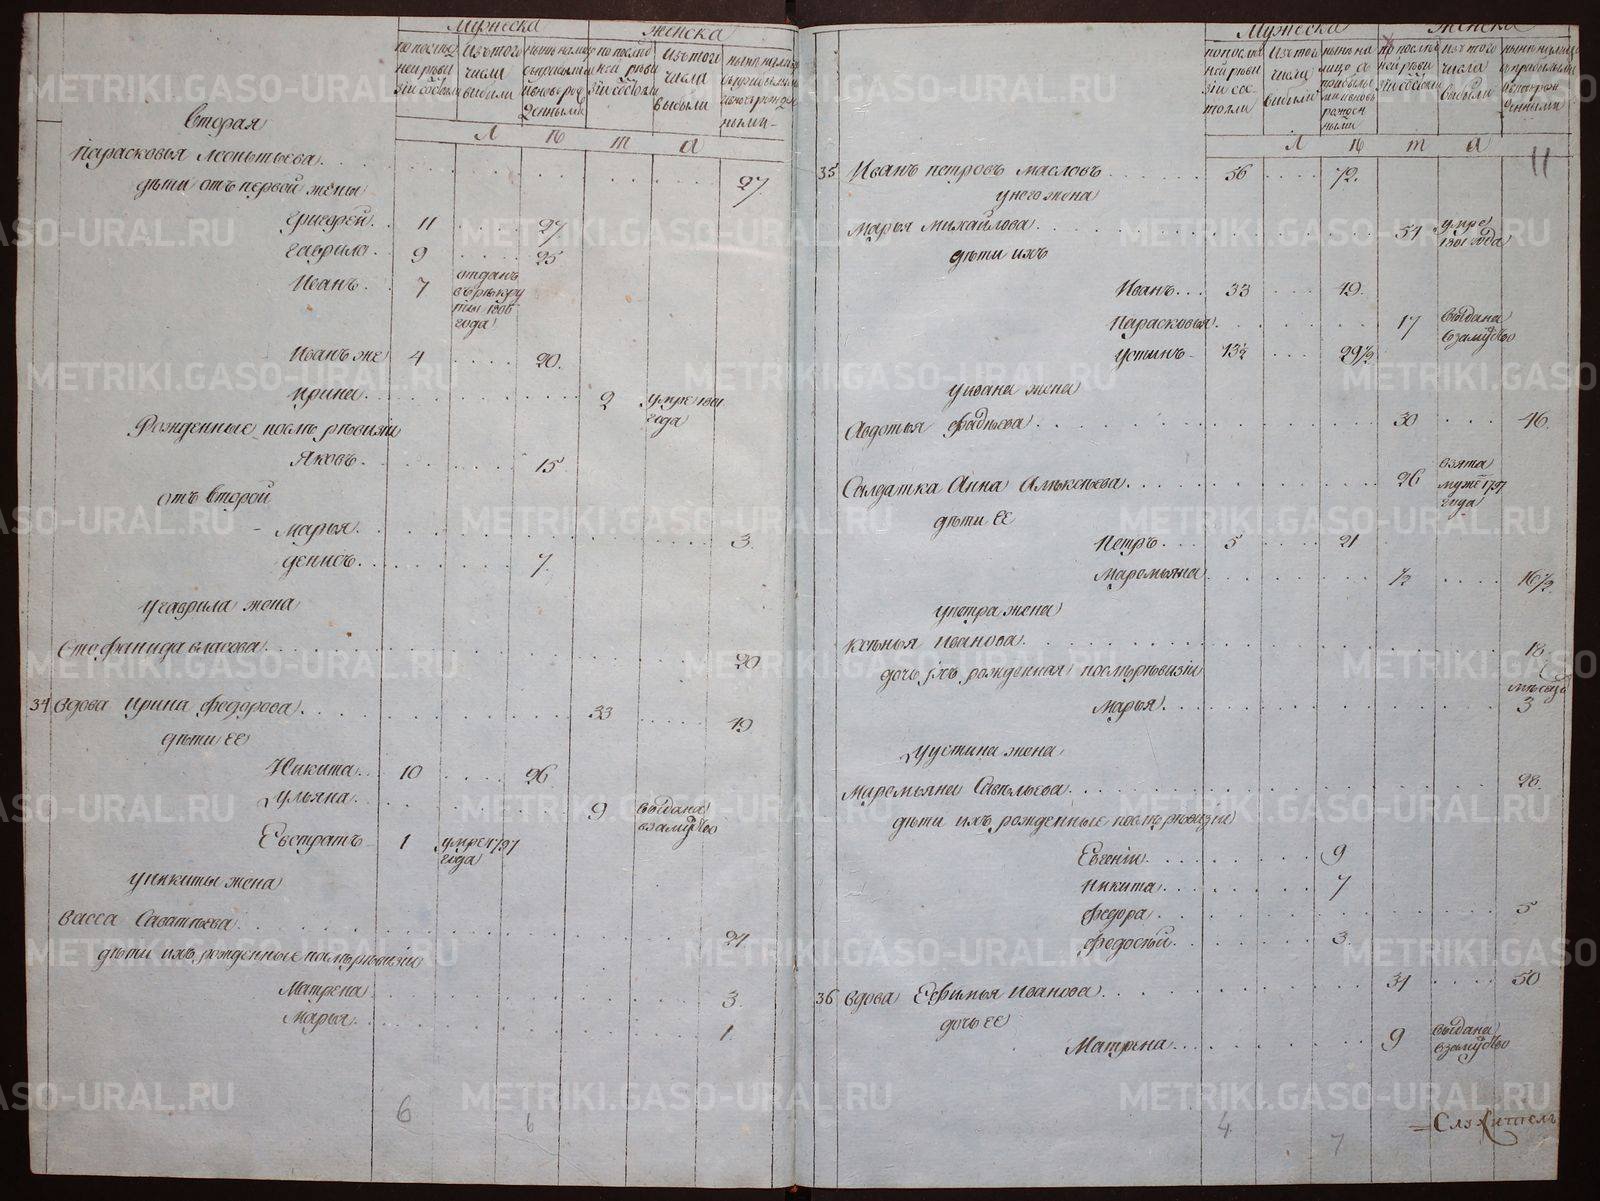 Мужеска Женска
по послѣдней ревизіи состояло
изъ того числа выбыли
нынѣ на лицо съ прибылыми и вновь рожденными
по последней ревизіи состояло
изъ того числа выбыли
ныне на лицо с прибылыми и вновь рожденными
Л ѣ т а
вторая
Парасковья Леонтьева 27
дѣти отъ первой жены
Григорей 11 27
Гаврила 9 25
Иванъ 7 отданъ в рекруты 1806 года
Иванъ же 4 20
Ирина 2 умре 1801 года
Рожденные после ревизіи
Яковъ 15
отъ второй
Марья 3
Денисъ 7
у Гаврила жена
Стефанида Власова 20
34 Вдова Ирина Федорова 33 49
дѣти ее
Никита 10 26
Ульяна 9 выдана в замужство
Евстратъ 1 умре 1797 года
у Никиты жена
Васса Саватеева 24
дѣти ихъ рожденные после ревизіи
Матрена 3
Марья 1
6 6
Мужеска Женска
по последней ревизіи состояли
изъ того числа выбыли
ныне на лицо с прибылыми и вновь рожденными
по последней ревизіи состояли
изъ того числа выбыли
ныне на лицо с прибылыми и вновь рожденными
Л ѣ т а
11
35 Иванъ Петровъ Масловъ 56 72
у него жена
Марья Михайлова 54 умре 1801 года
дѣти ихъ
Иванъ 33 49
Парасковья 17 выдана в замужство
Устинъ 13½ 29½
у Ивана жена
Авдотья Фадеева 30 46
Салдатка Анна Алексеева 26 взята мужем 1797 года
дѣти ее
Петръ 5 21
Маремьяна ½ 16½
у Петра жена
Ксенья Иванова 18
дочь ихъ рожденная после ревизіи
месяца
Марья 3
у Устина жена
Маремьяна Савельева 28
дѣти ихъ рожденные после ревизіи
Евгеніи 9
Никита 7
Федора 5
Федосѣй 3
36 Вдова Ефимья Иванова 34 50
дочь ее
Матрена 9 выдана в замужство
4 7
Служитель
METRIKI.GASO-URAL.RU